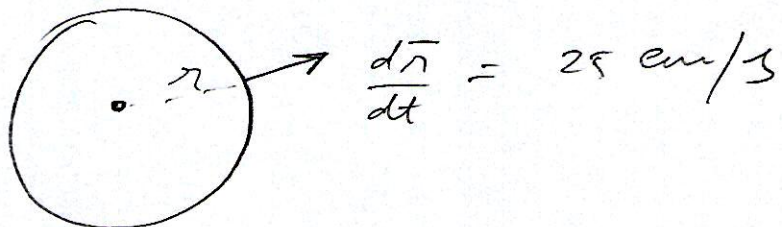 r
dr̄/dt = 25 cm/s